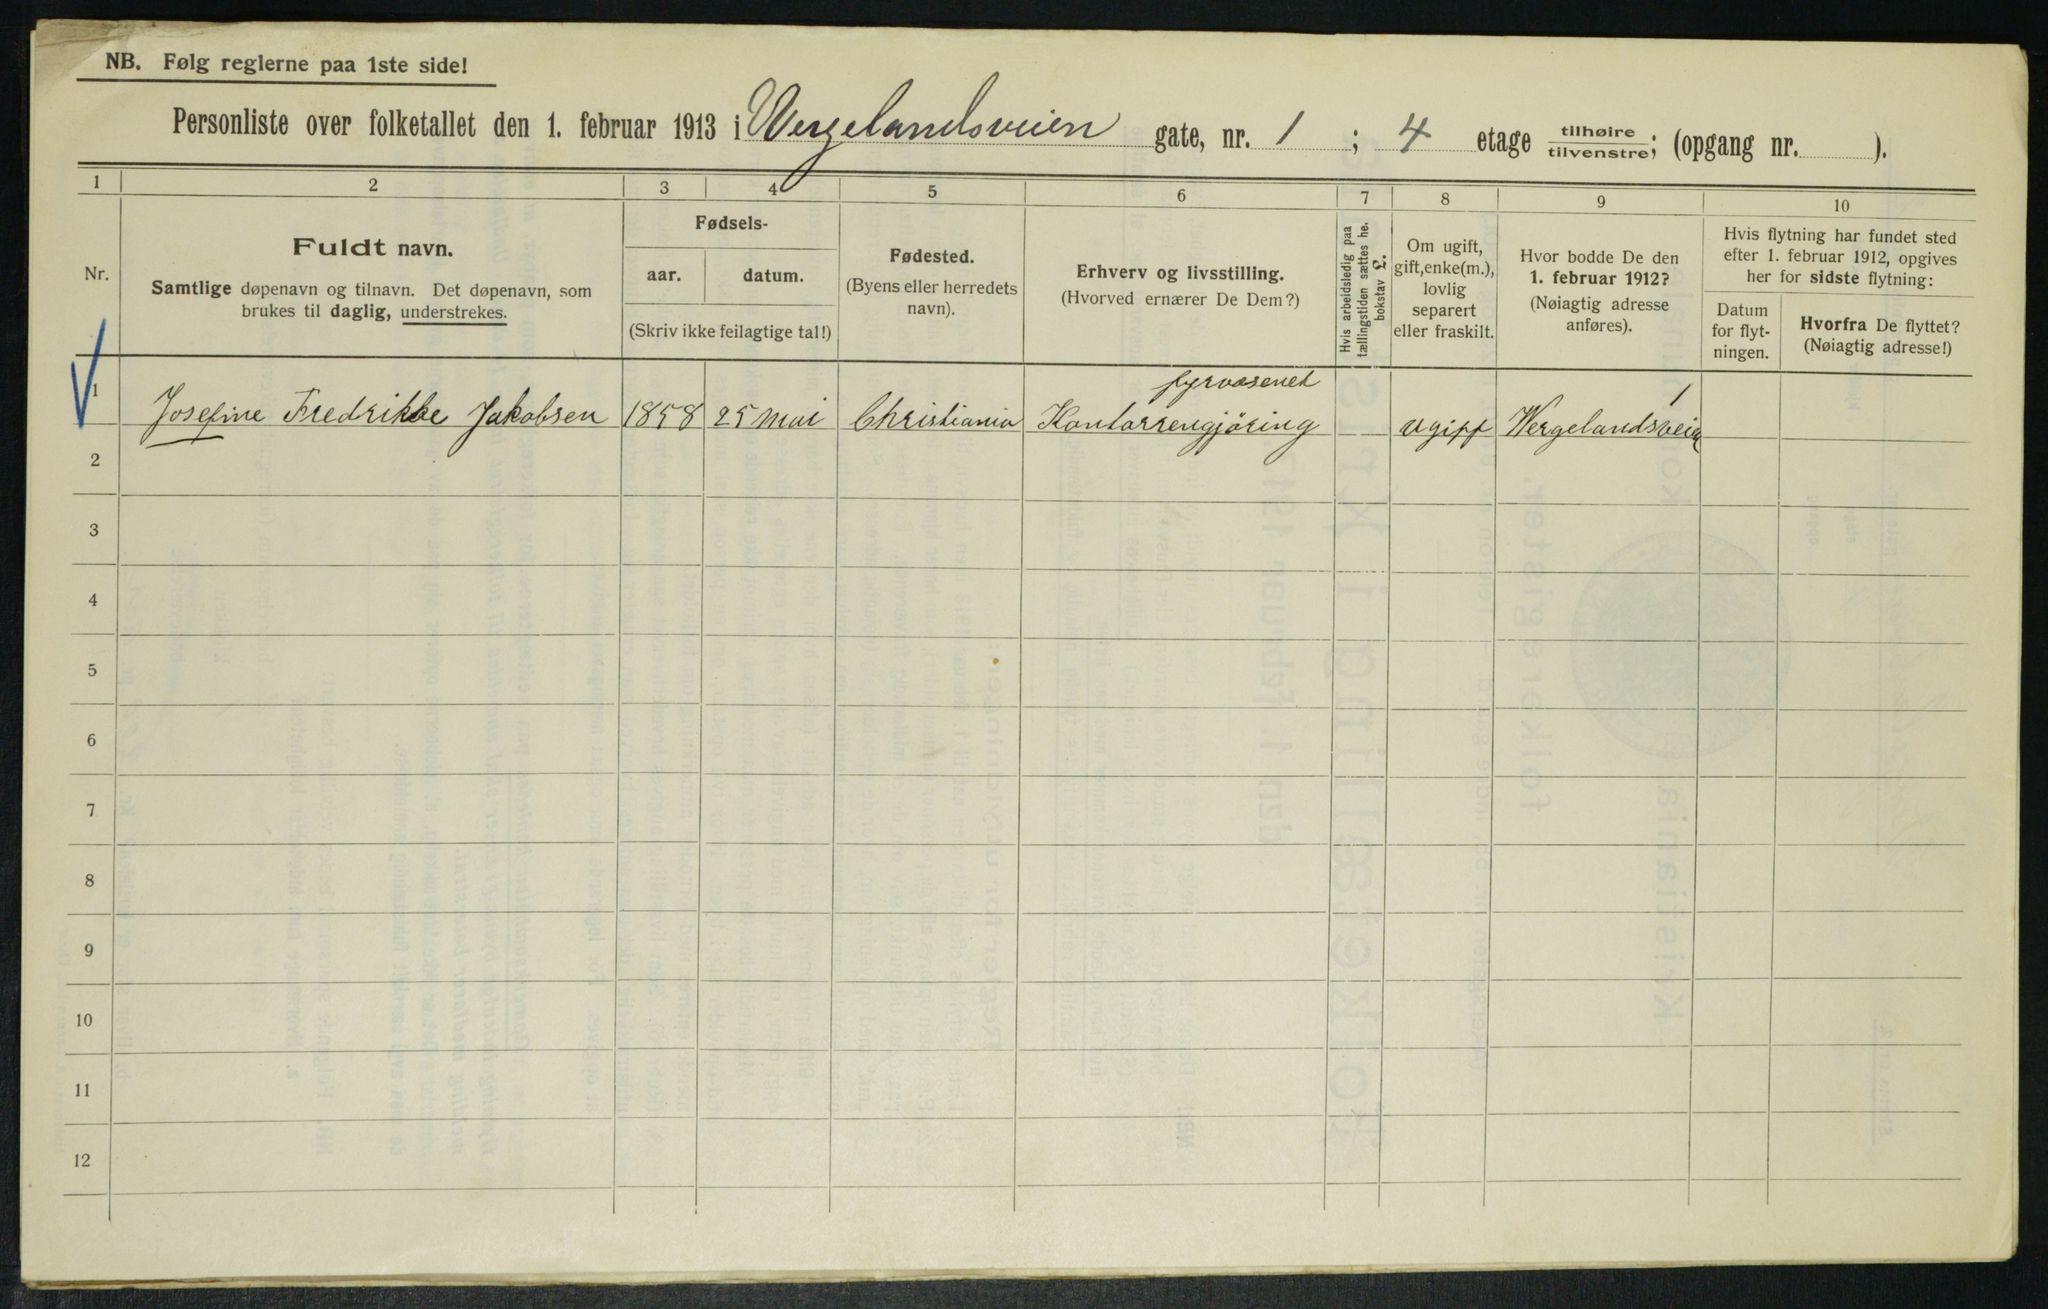 NB. Følg reglerne paa 1ste side!
Personliste over folketallet den 1. februar 1913 i Wergelandsveien gate, nr. 1 ; 4 etage tilhøire / tilvenstre; (opgang nr. ).
1 2 3 4 5 6 7 8 9 10
Nr.
Fuldt navn.
Samtlige døpenavn og tilnavn. Det døpenavn, som
brukes til daglig, understrekes.
Fødsels-
aar. datum.
(Skriv ikke feilagtige tal!)
Fødested.
(Byens eller herredets
navn).
Erhverv og livsstilling.
(Hvorved ernærer De Dem?)
Hvis arbeidsledig paa
tællingstiden sættes her
bokstav L.
Om ugift,
gift, enke(m.),
lovlig
separert
eller fraskilt.
Hvor bodde De den
1. februar 1912?
(Nøiagtig adresse
anføres).
Hvis flytning har fundet sted
efter 1. februar 1912, opgives
her for sidste flytning:
Datum
for flyt-
ningen.
Hvorfra De flyttet?
(Nøiagtig adresse!)
fyrvæsenet 1
1 Josefine Fredrikke Jakobsen 1858 25 mai Christiania Kontorrengjöring ugift Wergelandsveien
2
3
4
5
6
7
8
9
10
11
12